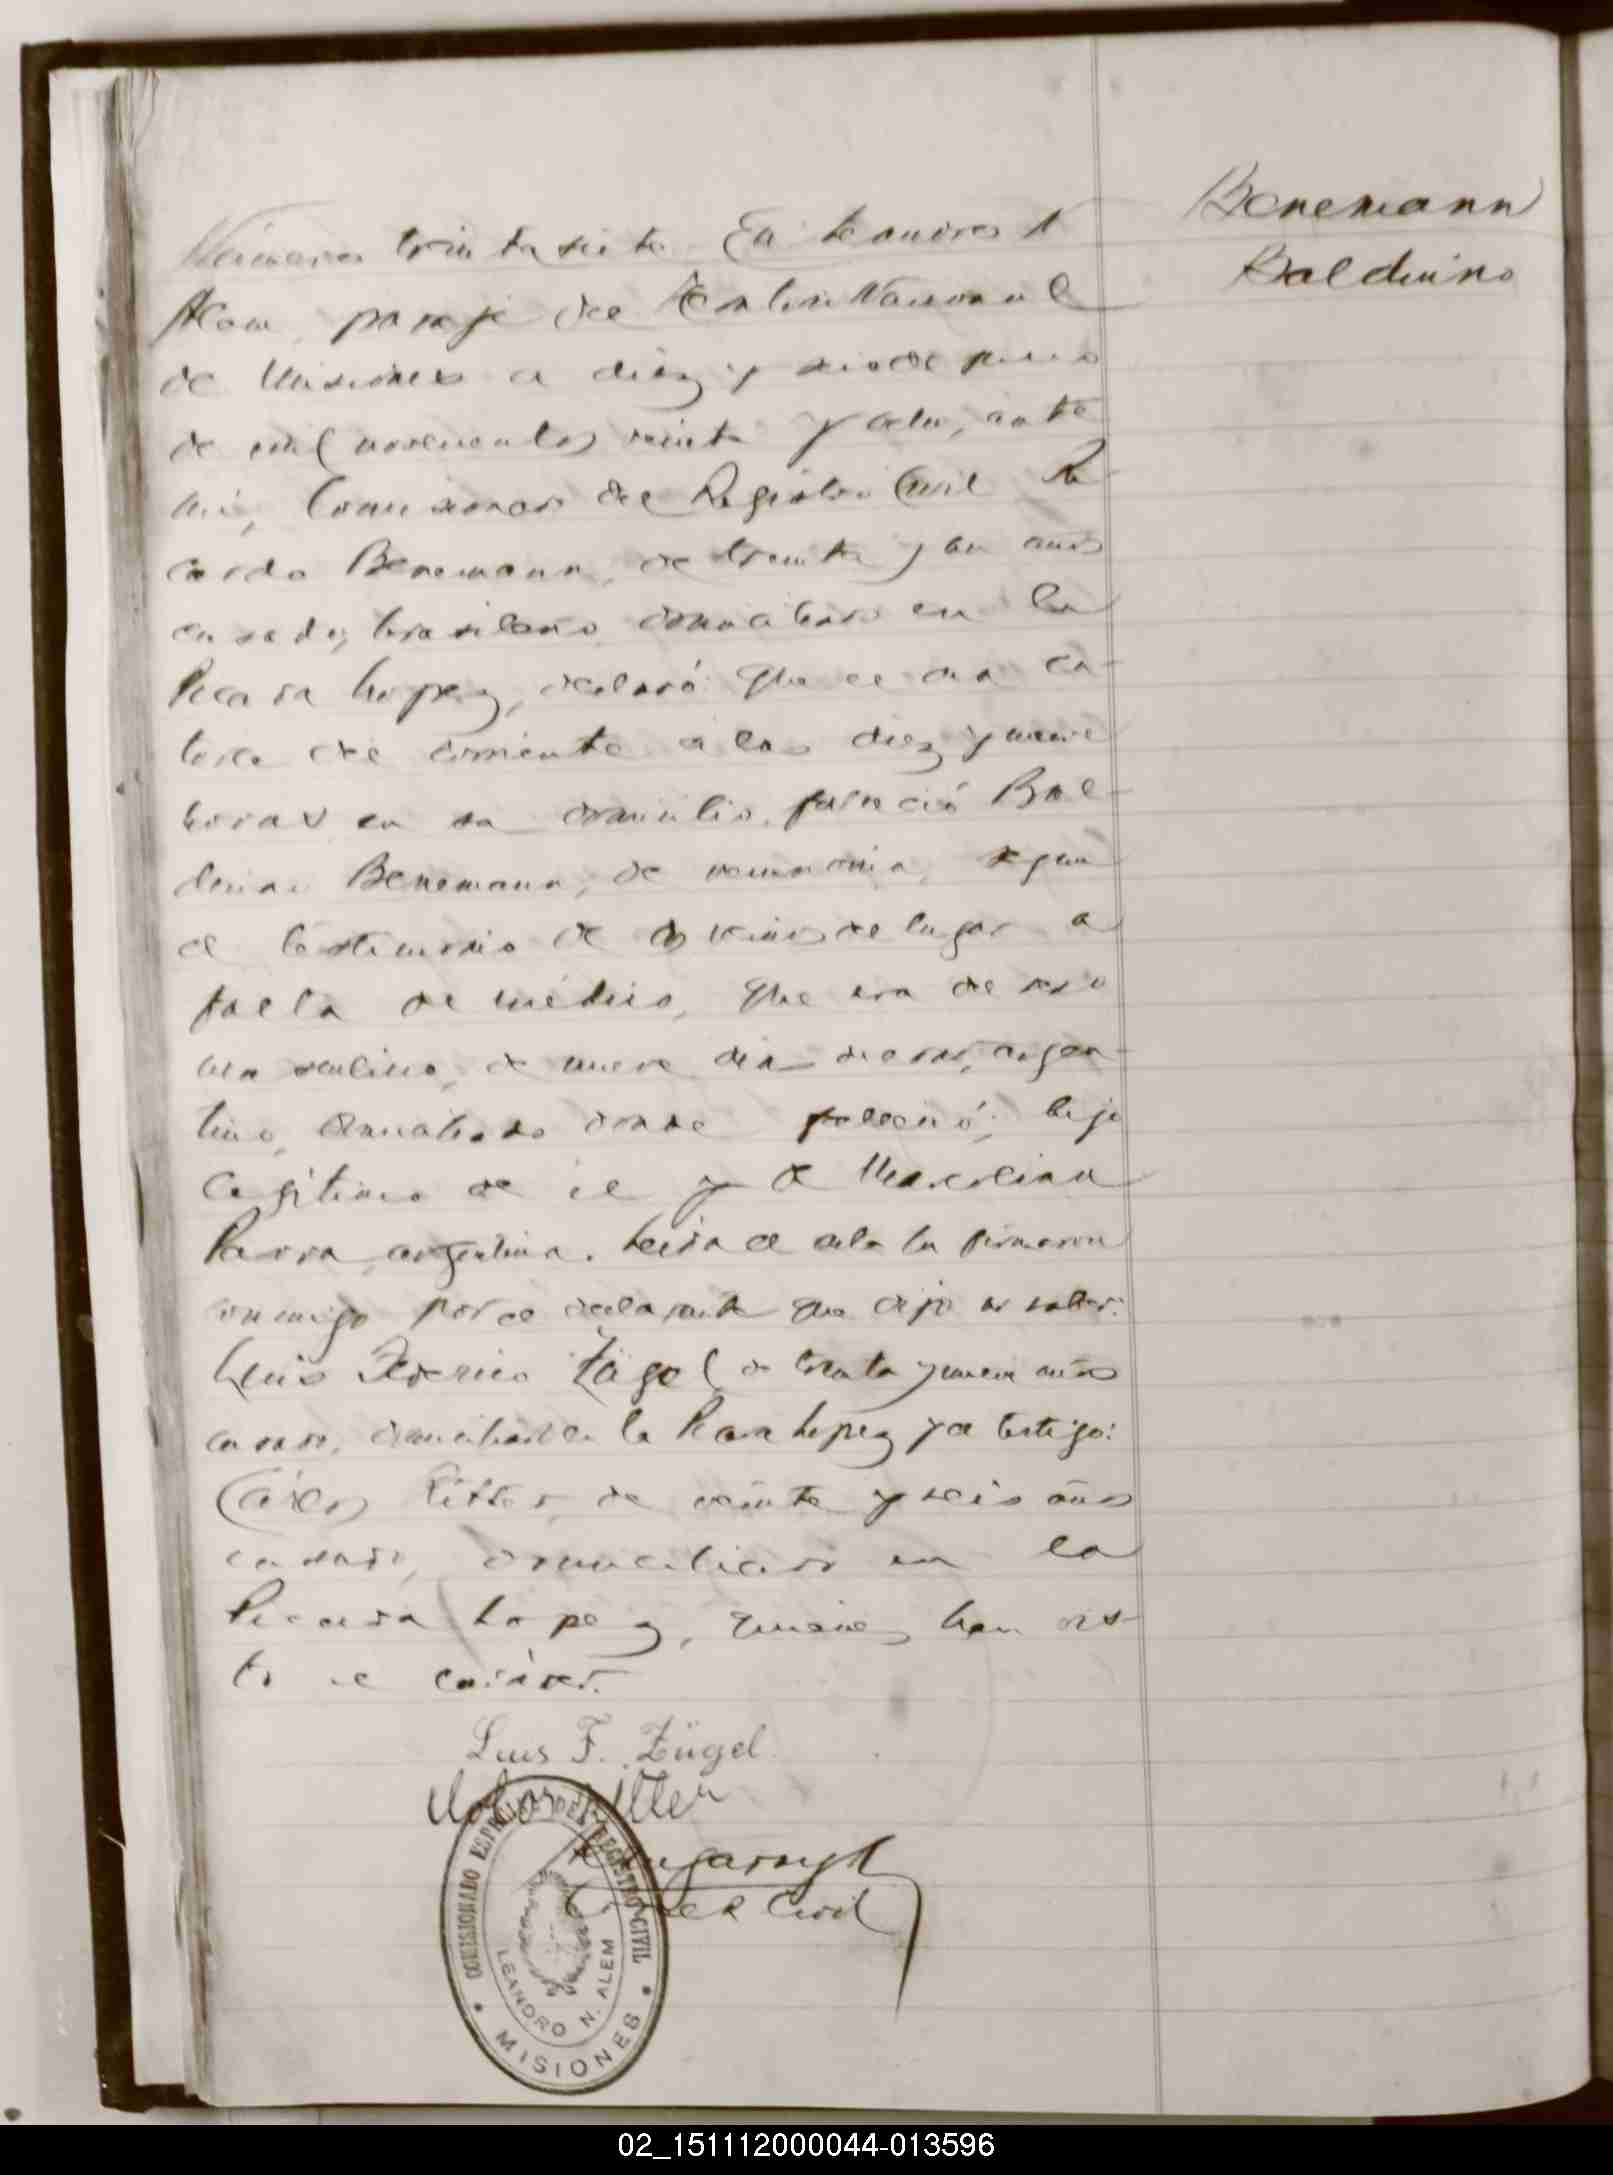 Benemann
Balduino
Número treinta siete. En Leandro N
Alem, paraje del Territorio Nacional
de Misiones a diez y seis de
de mil novecientos veinte y ocho, ante
mi, Comisionado del Registro Civil Ri-
cardo Benemann, de treinta y un años
casado, brasileño domiciliado en la
Picada Lopez, declaró: Que el dia ca-
torce del corriente a las diez y nueve
horas en su domicilio, falleció Bal-
duino Benemann, de neumonia, segun
el testimonio de dos vecinos de lugar a
falta de médico, que era de sexo
masculino, de nueve dias de edad, argen-
tino, domiciliado donde falleció; hijo
legitimo de él y de Marcolina
Parra, argentina. Leida el acta la firmaron
conmigo por el declarante que dijo no saber:
Luis Federico Zügel de treinta y nueve años
casado, domiciliado en la Picada Lopez y el testigo:
Carlos Ritter, de veinte y seis años
casado, domiciliado en la
Picada Lopez, quienes han vis-
to el cadáver.
Luis F. Zügel
Ritter
Civil
COMISIONADO ESPECIAL DEL REGISTRO CIVIL
LEANDRO N. ALEM
MISIONES
02_151112000044-013596